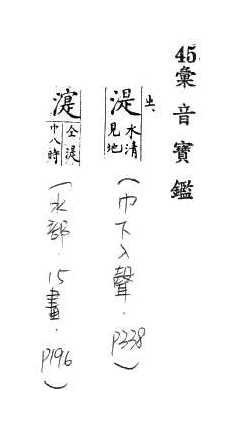 45彙音寶鑑
湜 水清見地 (巾下入聲．P338)
仝湜 巾八時 (水部．15畫．P196)